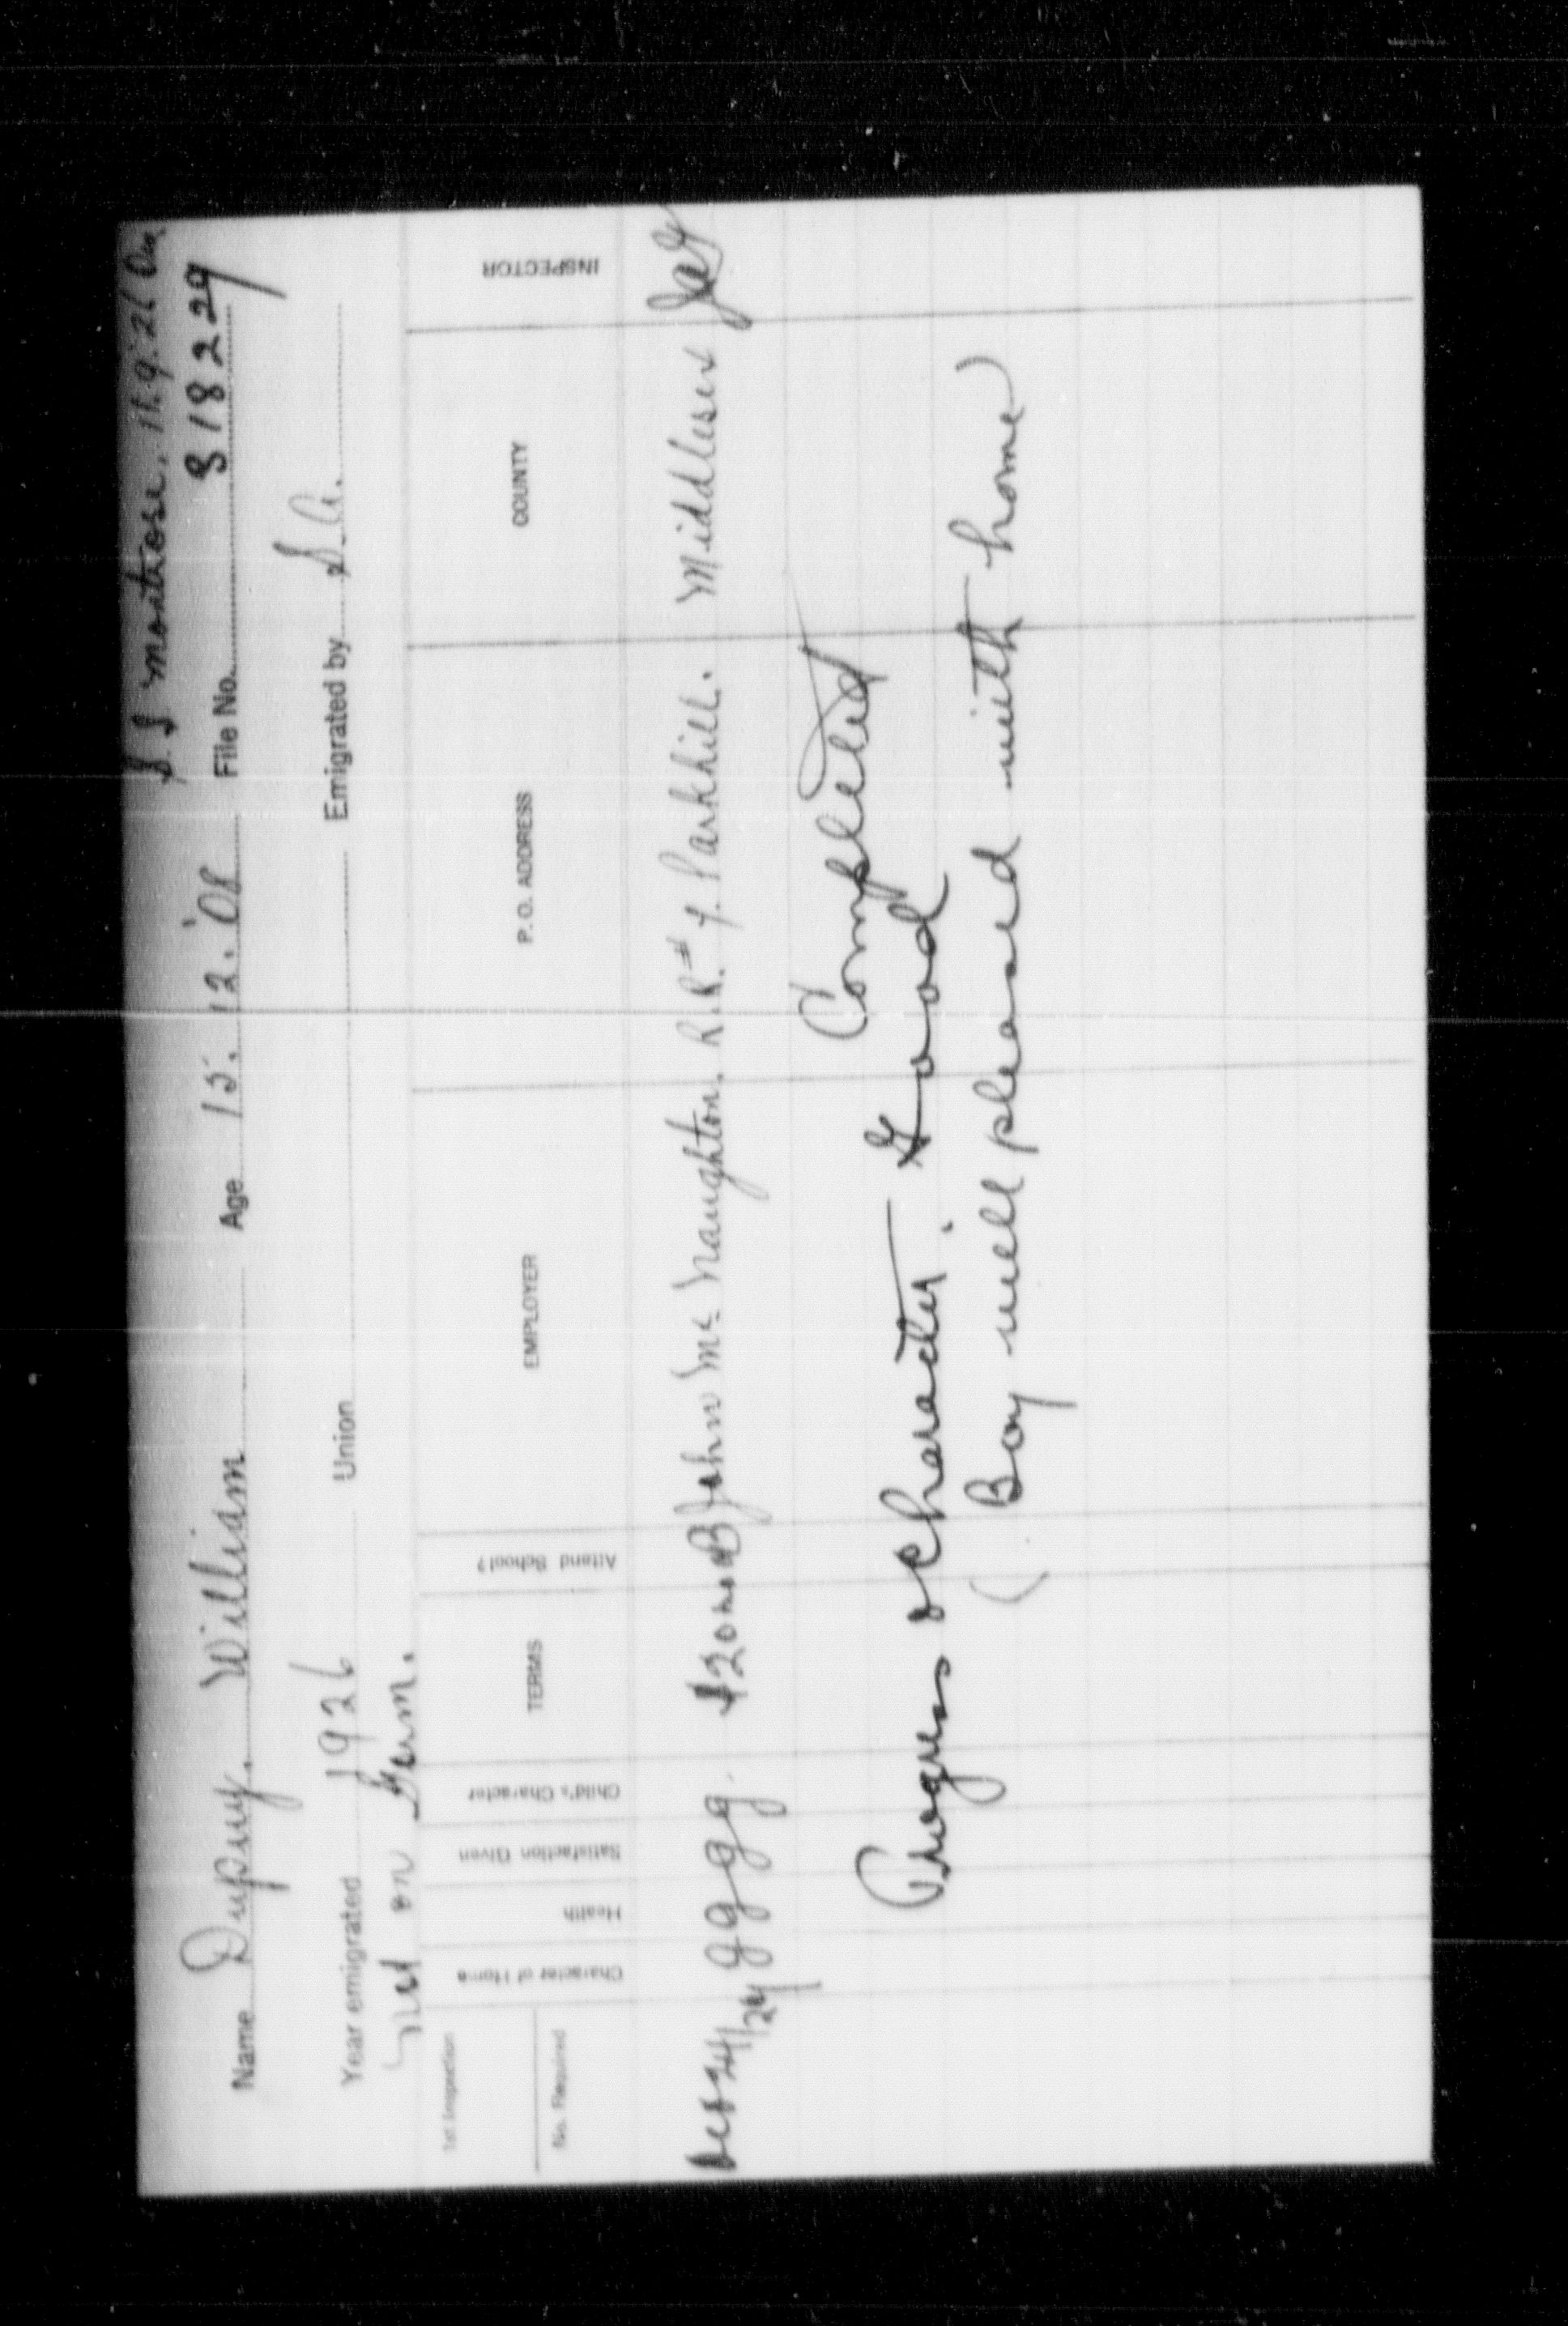 S.S. Montrose, 11.9.26
Name Dupuy, William Age 15.12.'08 File No. 818229
Year emigrated 1926 Union Emigrated by S.A.
on Farm.
1st Inspection
No. Required
Character of Home
Health
Satisfaction Given
Child's Character
TERMS
Attend School?
EMPLOYER
P. O. ADDRESS
COUNTY
INSPECTOR
g g g g. $20 John McNaughton. R.R.# 7. Parkhill. Middlesex
Completed
Progress & Character. Good
(Boy well pleased with home)